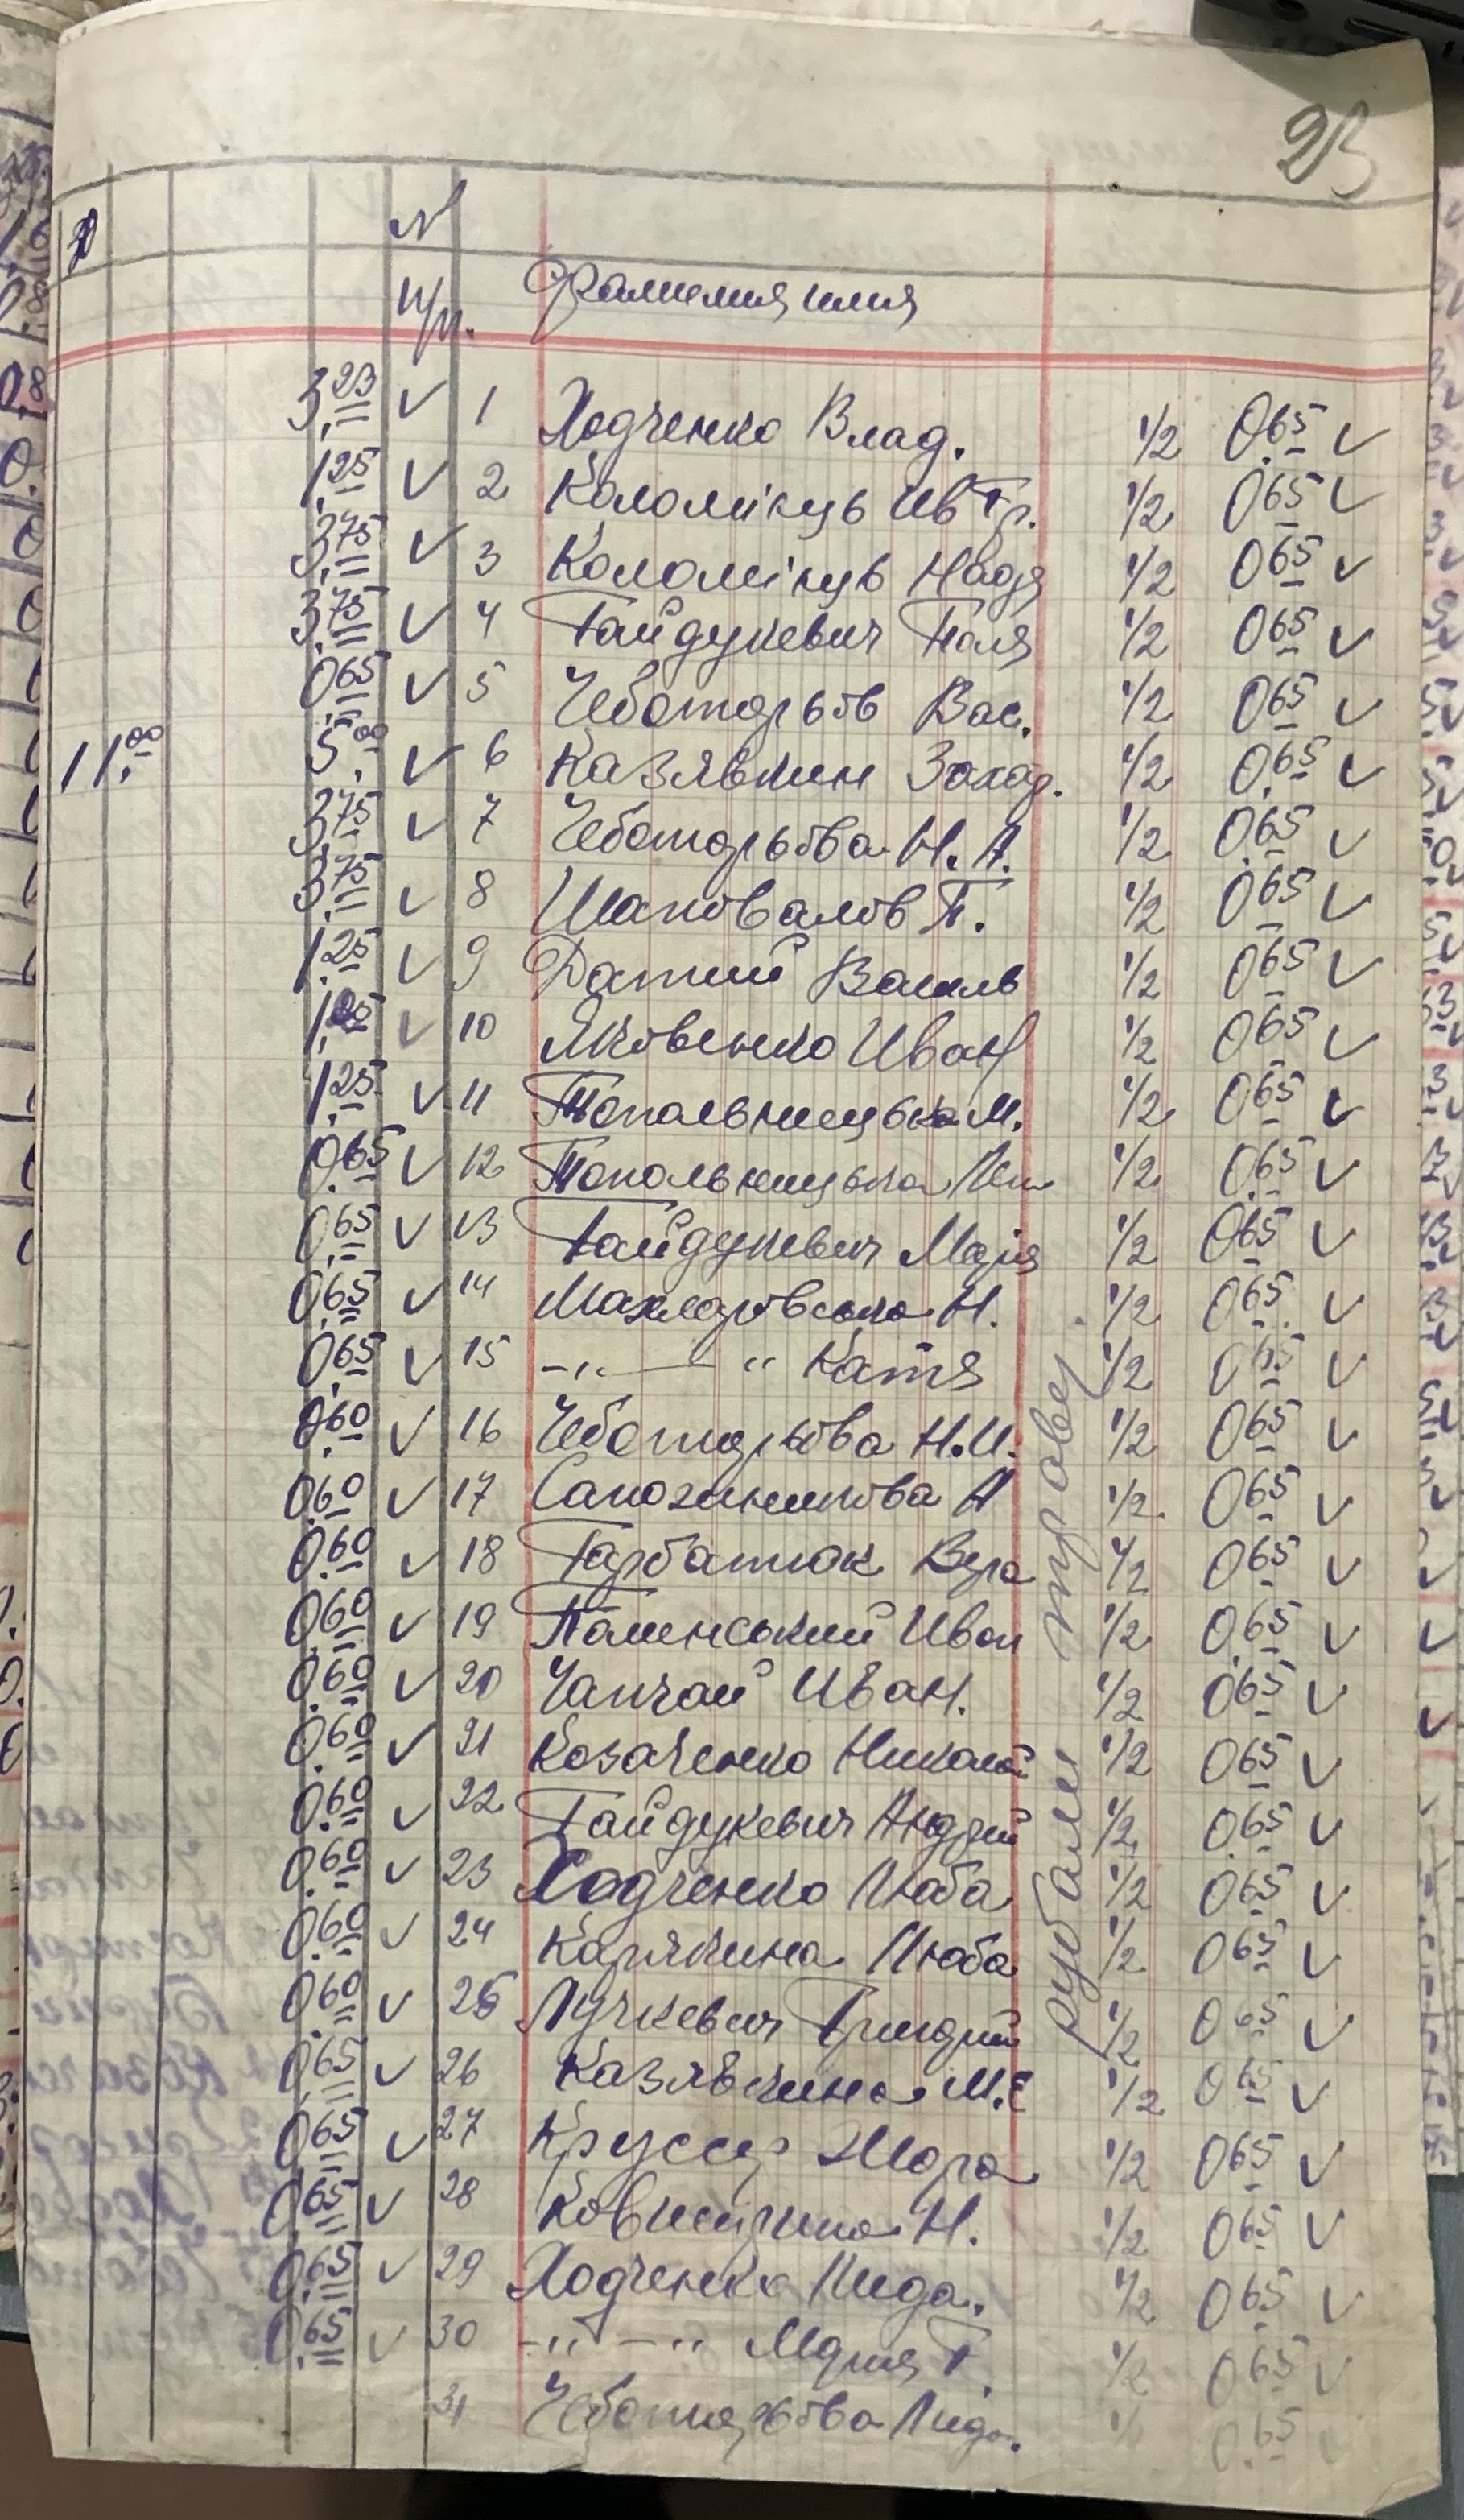 23
N
п/п. Фамилия имя
3,23 v 1 Ходченко Влад. 1/2 0.65 v
1,25 v 2 Коломікць Ив Гр. 1/2 0,65 v
3,75 v 3 Коломікць Надя 1/2 065 v
3,75 v 4 Гайдукевич Поля 1/2 065 v
065 v 5 Чеботарьов Вас. 1/2 065 v
11.00 5,00 v 6 Казявкин Захар. 1/2 0.65 v
3,75 v 7 Чеботарьова Н. А. 1/2 0.65 v
3,75 v 8 Шаповалов П. 1/2 065 v
1.25 v 9 Датий Василь 1/2 065 v
1,25 v 10 Яковенко Иван 1/2 065 v
1,25 v 11 Топольницька М. 1/2 065 v
0.65 v 12 Топольницька 1/2 0.65 v
0,65 v 13 Гайдукевич Марія 1/2 065 v
0,65 v 14 Махларовська Н. 1/2 065 v
0,65 v 15 -"- " Катя 1/2 065 v
0.60 v 16 Чеботарьова Н.И. 1/2 065 v
0.60 v 17 Сапожникова А 1/2 065 v
0.60 v 18 Гарбатюк Вера 1/2 065 v
0.60 v 19 Паленський Иван 1/2 0.65 v
0.60 v 20 Чапчай Иван. 1/2 065 v
0.60 v 21 Козаченко Николай 1/2 065 v
0.60 v 22 Гайдукевич Андрій 1/2 0.65 v
0.60 v 23 Ходченко Люба 1/2 065 v
0.60 v 24 Карякина Люба 1/2 065 v
0.60 v 25 Лучкевич Григорий 1/2 065 v
065 v 26 Казявкина М.Е 1/2 065 v
065 v 27 Круссер Жора 1/2 065 v
0,65 v 28 Н. 1/2 065 v
0.65 v 29 Ходченко Лида. 1/2 065 v
0.65 v 30 -"-" Мария Г. 1/2 065 v
31 Чеботарьова Лида. 065
рубали